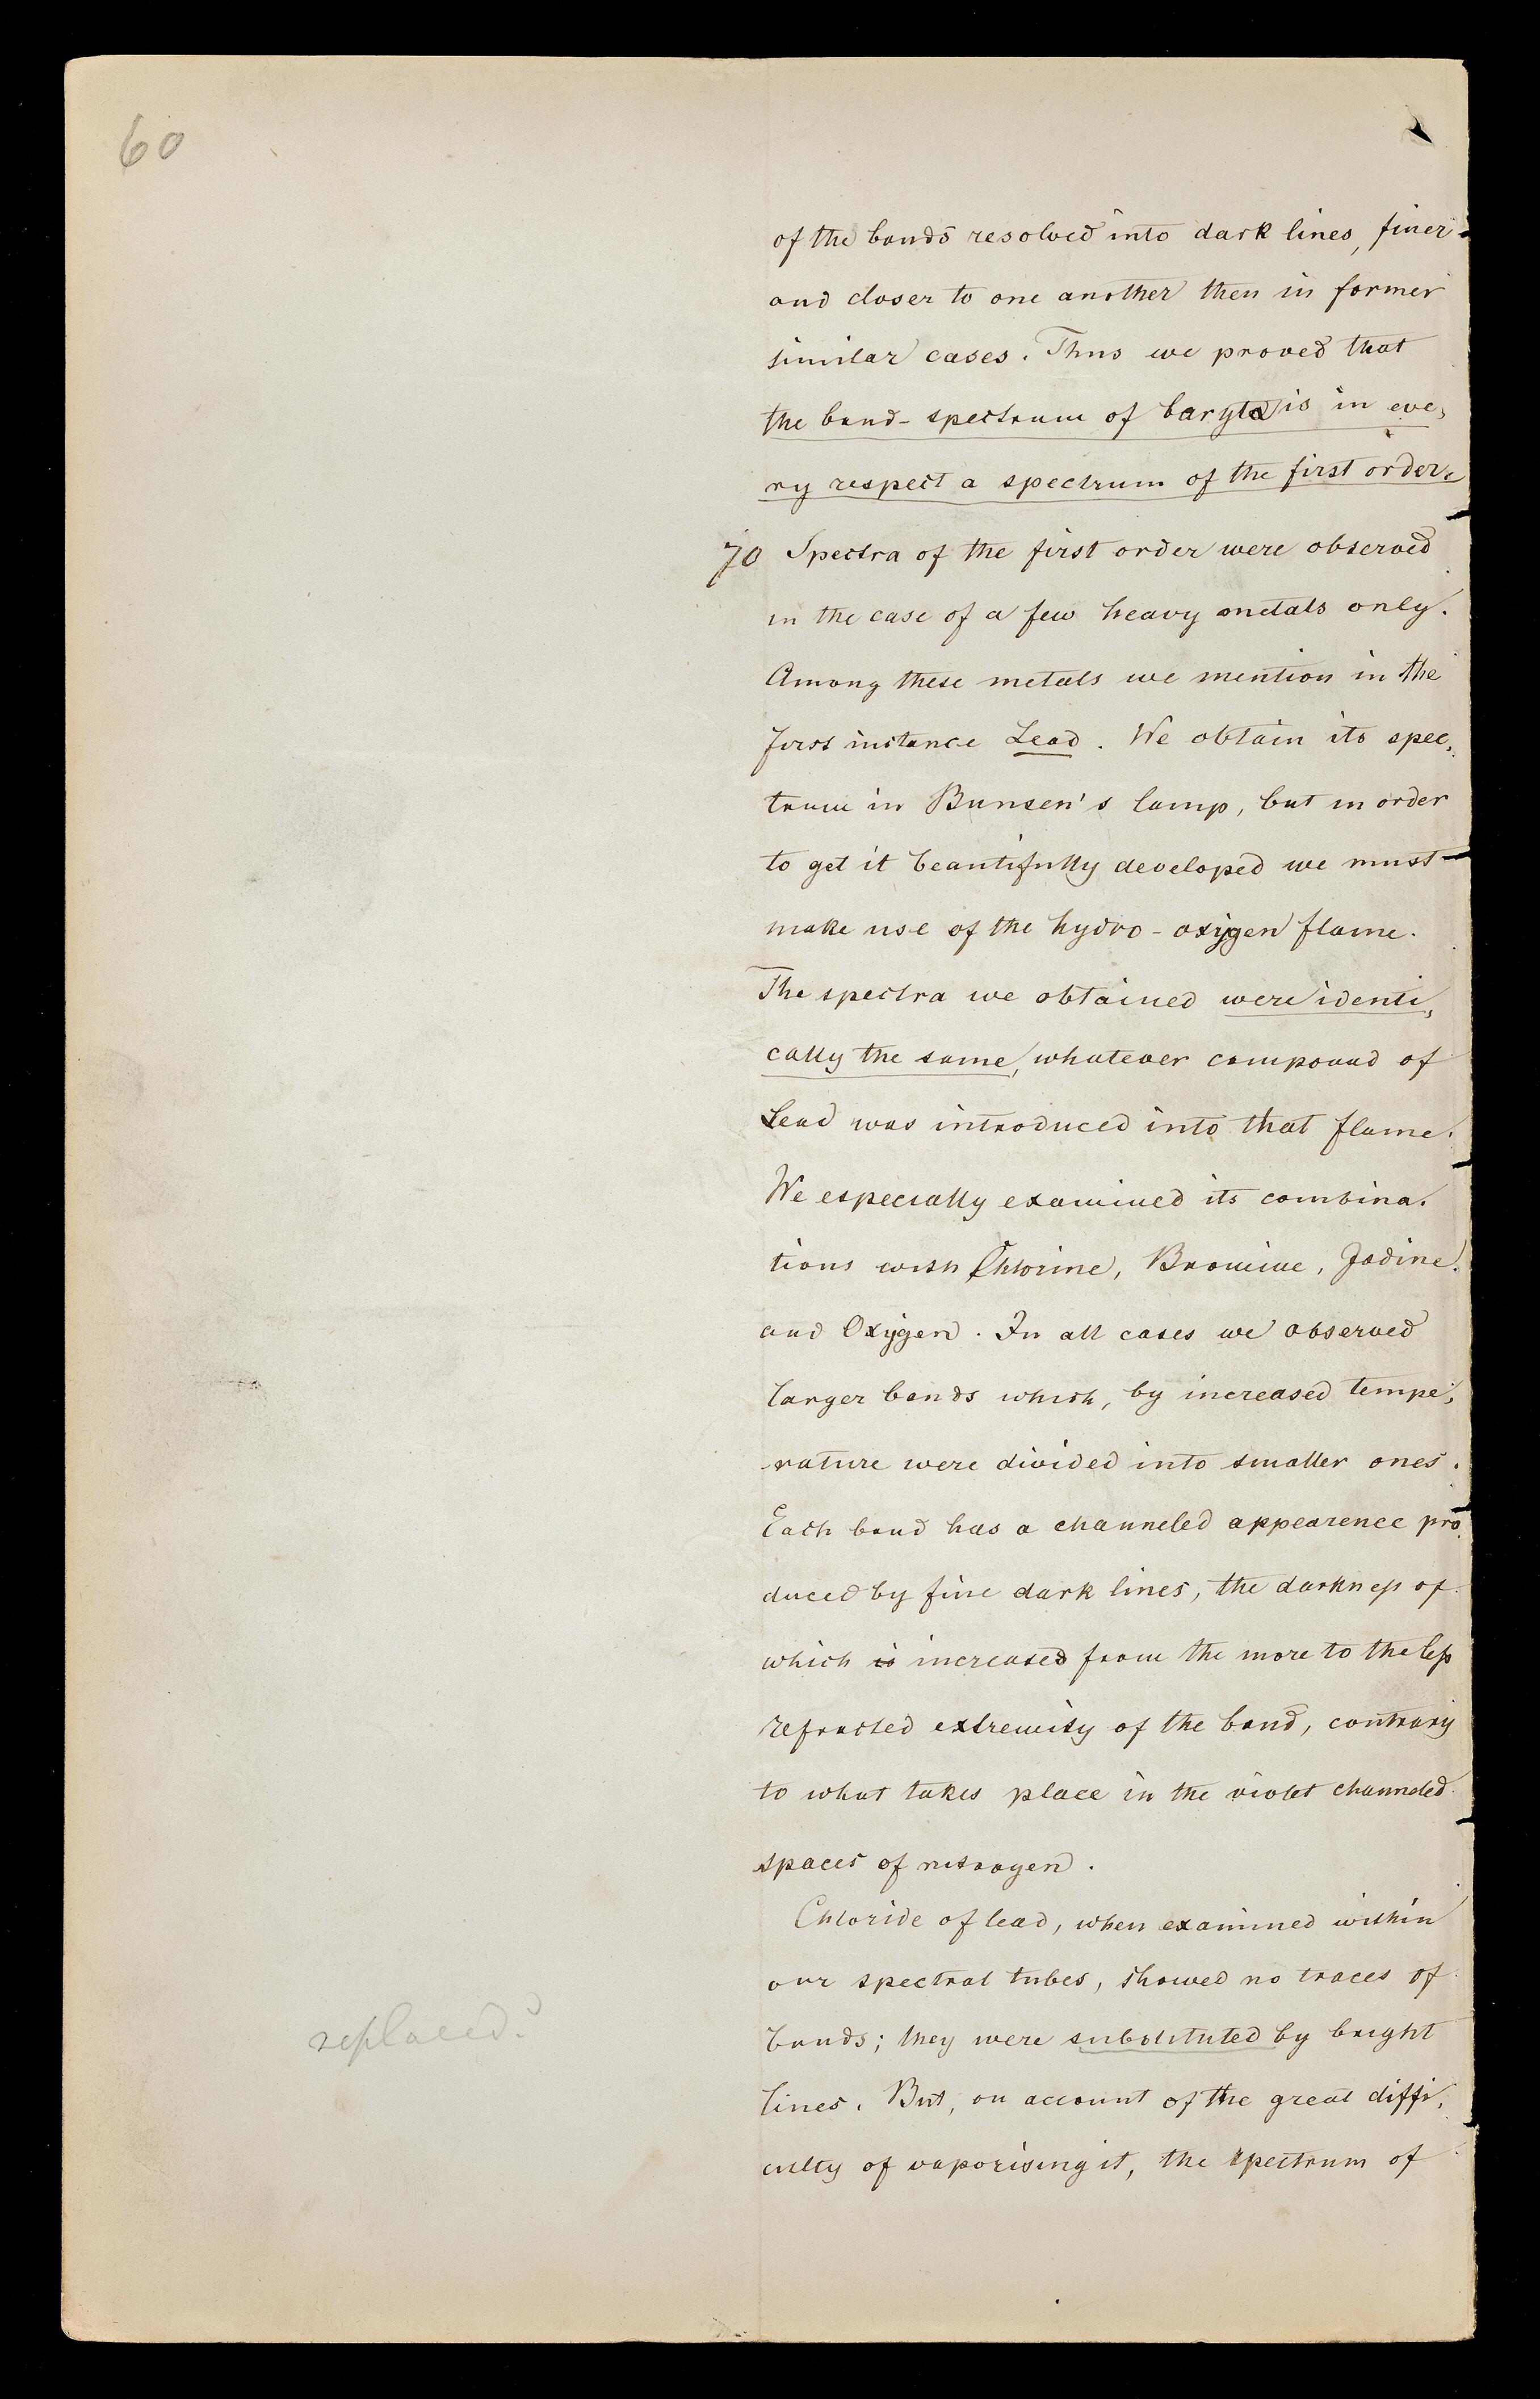 60
of the bands resolved into dark lines, finer
and closer to one another then in former
similar cases. Thus we proved that
the band-spectrum of baryta is in eve,
ry respect a spectrum of the first order.
70 Spectra of the first order were observed
in the case of a few heavy metals only.
Among these metals we mention in the
first instance Lead. We obtain its spec,
trum in Bunsen's lamp, but in order
to get it beautifully developed we must
make use of the hydro-oxygen flame.
The spectra we obtained were identi,
cally the same, whatever compound of
Lead was introduced into that flame.
We especially examined its combina,
tions with Chlorine, Bromine, Jodine
and Oxygen. In all cases we observed
larger bands which, by increased tempe,
rature were divided into smaller ones.
Each band has a channeled appearence pro,
duced by fine dark lines, the darkness of
which is increased from the more to the less
refracted extremity of the band, contrary
to what takes place in the violet channeled
spaces of nitrogen.
Chloride of lead, when examined within
our spectral tubes, showed no traces of
replaced?
bands; they were substituted by bright
lines. But, on account of the great diffi,
culty of vaporising it, the spectrum of